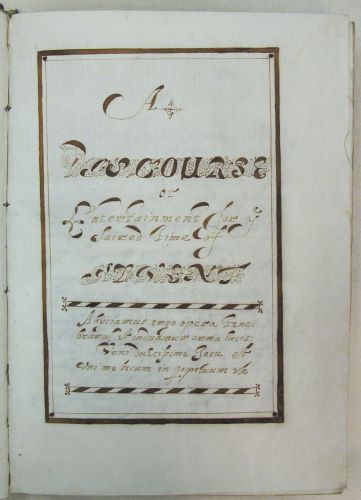 A
DISCOURSE
or
Entertainment for yᵉ
Sacred time off
ADVENT
Abyciamus ergo opera tene
braru, et induamur arma lucis:
Veni dulcissime Jesu, et
mecum in